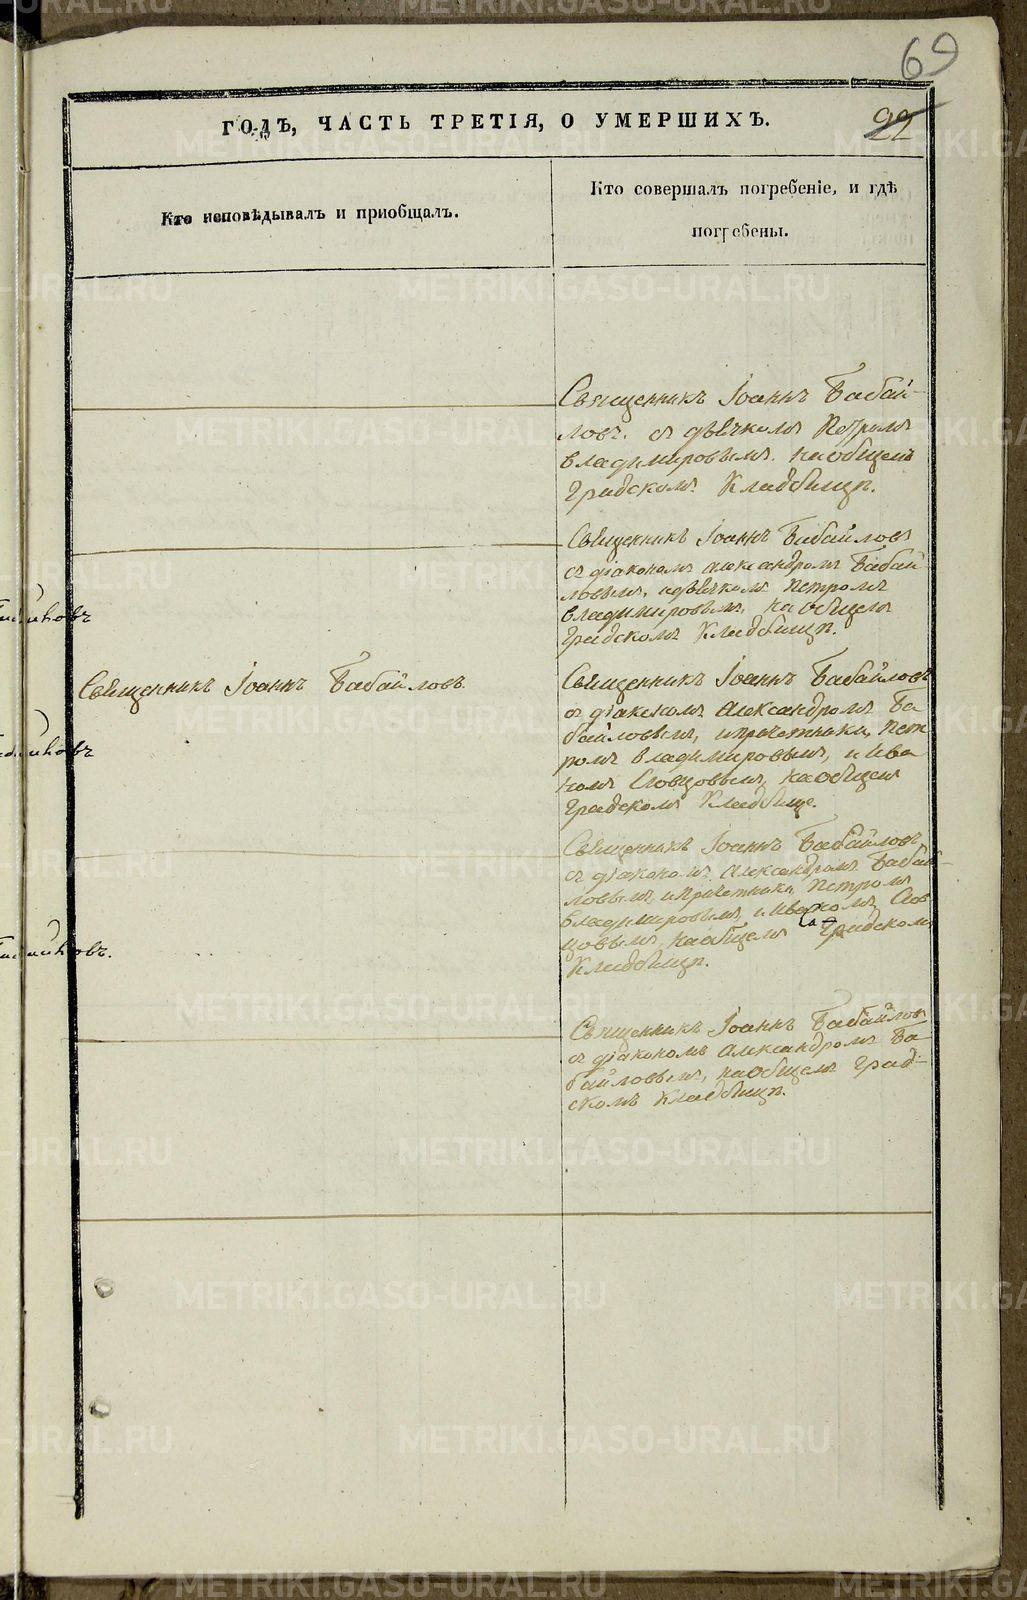 69
22
ГОДЪ, ЧАСТЬ ТРЕТІЯ, О УМЕРШИХЪ.
Кто исповѣдывалъ и пріобщалъ.
Кто совершалъ погребеніе, и гдѣ
погребены.
Священникъ Іоаннъ Бабай-
ловъ. съ дьячкомъ Петромъ
Владимировымъ. на общемъ
Градскомъ Кладбищѣ.
Священникъ Іоаннъ Бабайловъ
съ діакономъ Александромъ Бабай-
ловымъ, и дьячкомъ Петромъ
Владимировымъ, на общемъ
Градскомъ Кладбищѣ.
Священникъ Іоаннъ Бабайловъ.
Священникъ Іоаннъ Бабайловъ
съ діакономъ Александромъ Ба
байловымъ, и причетники, Пет
ромъ Владимировымъ, и Ива
номъ Словцовымъ, на общемъ
Градскомъ Кладбище.
Священникъ Іоаннъ Бабайловъ
съ діакономъ Александромъ Бабай-
ловымъ, и причетники, Петромъ
Владимировымъ, и Иваномъ, Слов
цовымъ, на общемъ Градскомъ
Кладбищѣ.
Священникъ Іоаннъ Бабайловъ
съ діакономъ Александромъ Ба-
байловымъ, на общемъ Град-
скомъ Кладбищѣ.
METRIKI.GASO-URAL.RU